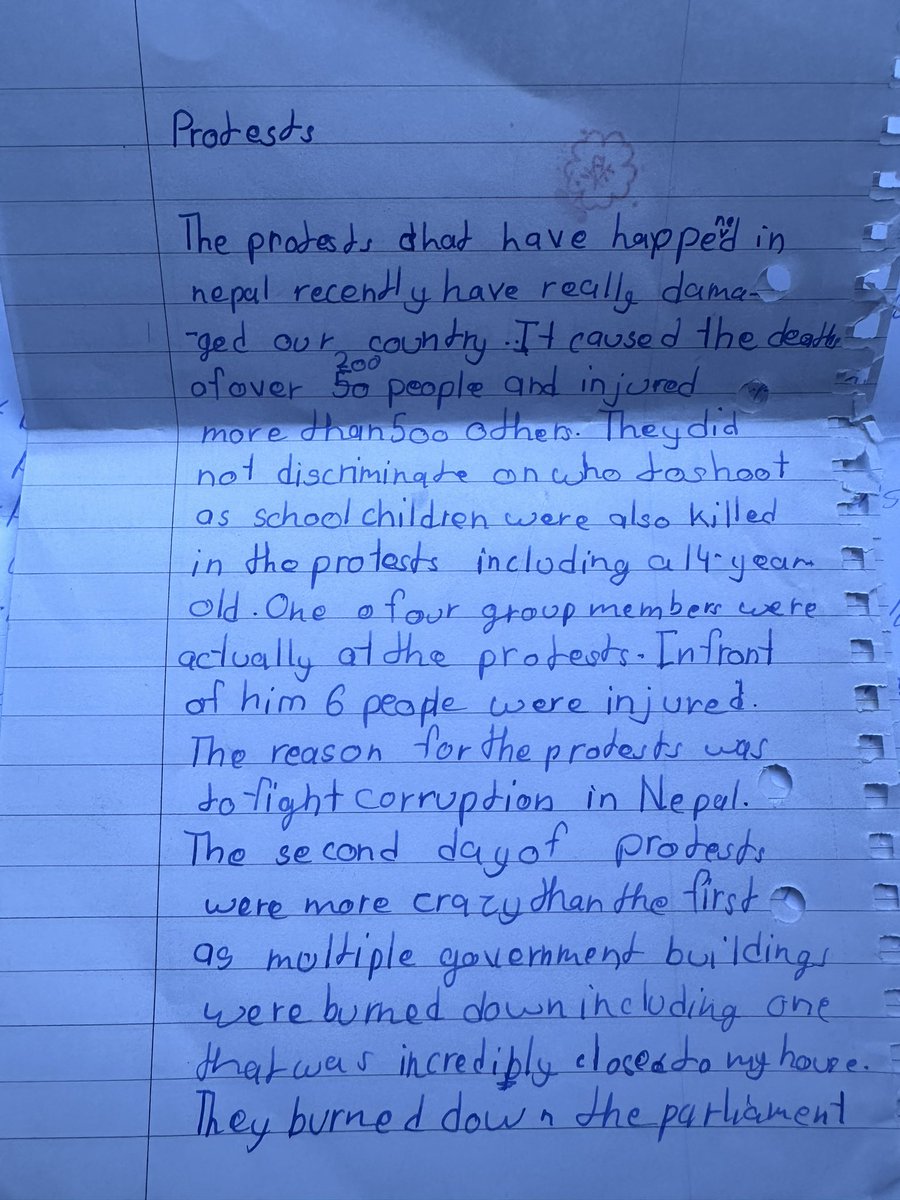 Protests
The protests that have happened in
nepal recently have really dama-
-ged our country. It caused the death
of over 200 50 people and injured
more than 500 others. They did
not discriminate on who to shoot
as school children were also killed
in the protests including a 14-year
old. One of our group members were
actually at the protests. Infront
of him 6 people were injured.
The reason for the protests was
to fight corruption in Nepal.
The second day of protests
were more crazy than the first
as multiple government buildings
were burned down including one
that was incredibly close to my house.
They burned down the parliament